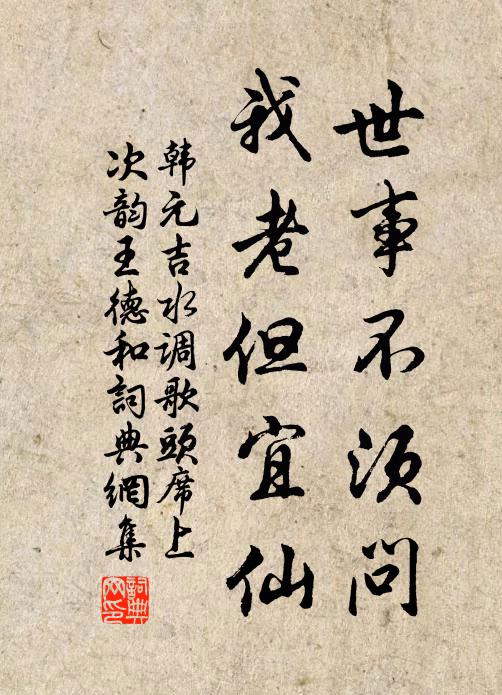 世事不须问
我老但宜仙
韩元吉水调歌頭席上
次韵王德和詞典網集
詞典網印